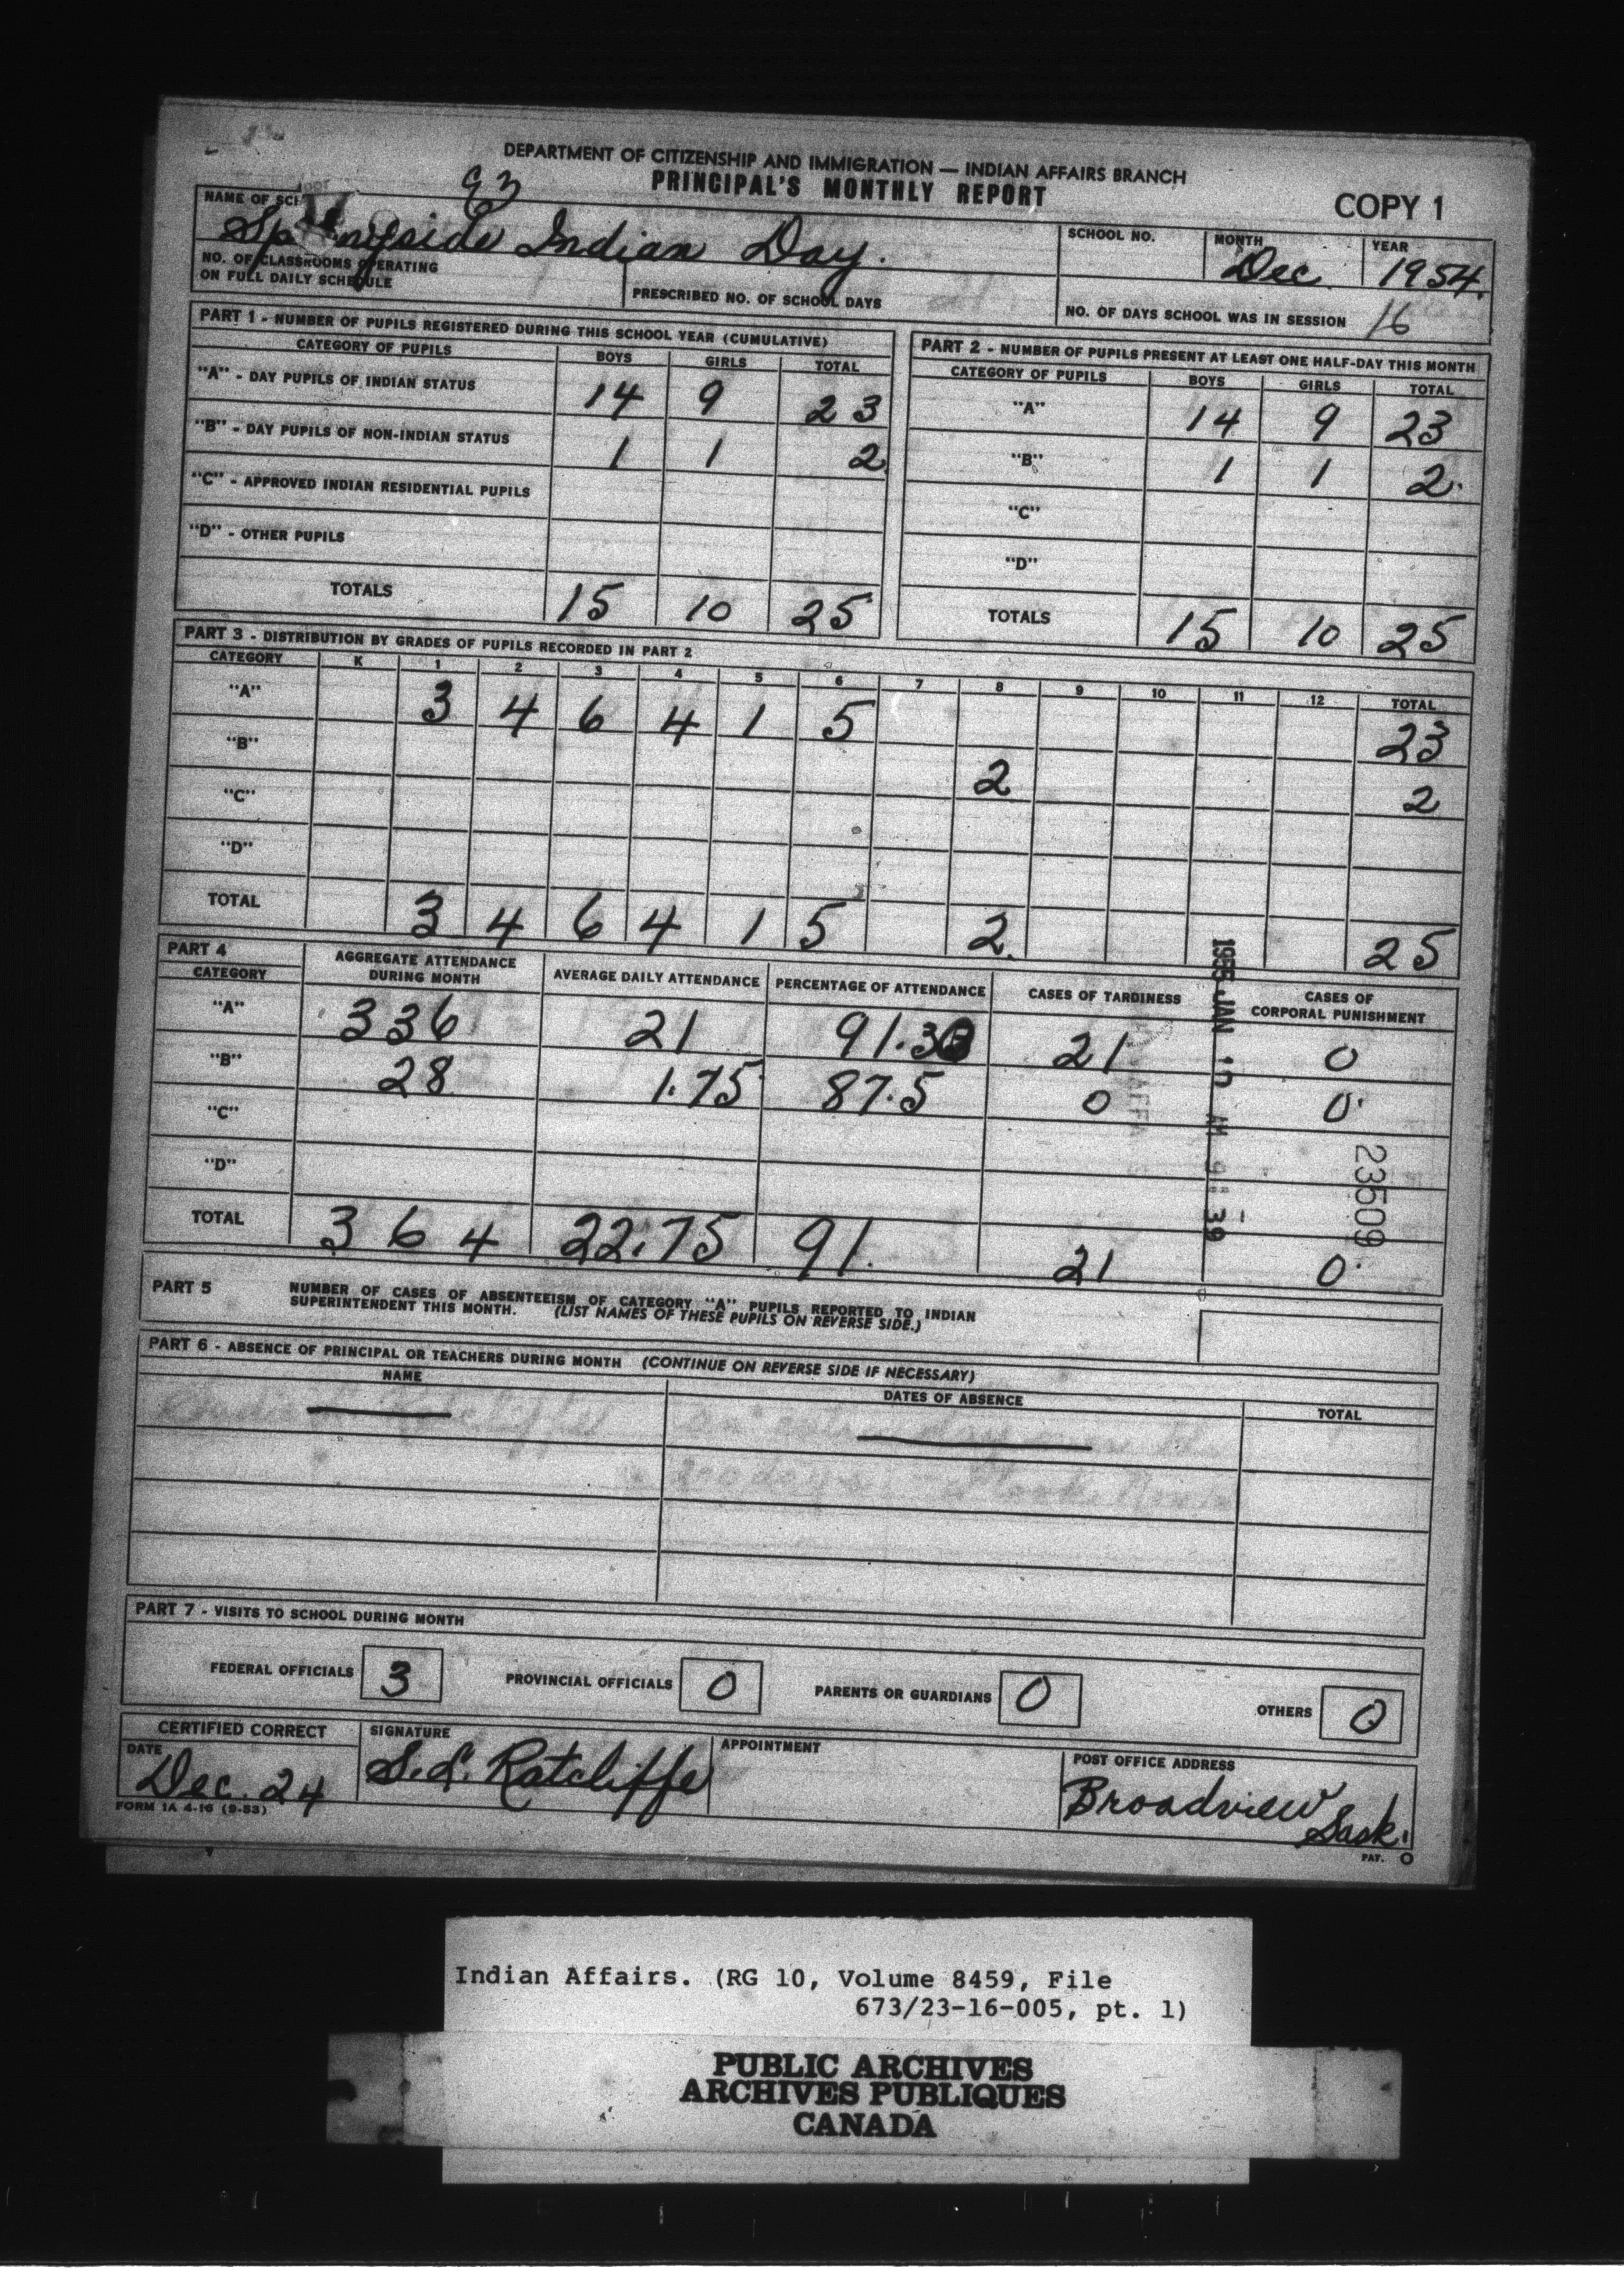 DEPARTMENT OF CITIZENSHIP AND IMMIGRATION — INDIAN AFFAIRS BRANCH
PRINCIPAL'S MONTHLY REPORT
COPY 1
NAME OF
Indian Day.
SCHOOL NO.
MONTH
Dec.
YEAR
1954.
NO. OF CLASSROOMS OPERATING
ON FULL DAILY SCHEDULE
PRESCRIBED NO. OF SCHOOL DAYS
NO. OF DAYS SCHOOL WAS IN SESSION 16
PART 1 - NUMBER OF PUPILS REGISTERED DURING THIS SCHOOL YEAR (CUMULATIVE)
CATEGORY OF PUPILS BOYS GIRLS TOTAL
"A" - DAY PUPILS OF INDIAN STATUS 14 9 23
"B" - DAY PUPILS OF NON-INDIAN STATUS 1 1 2
"C" - APPROVED INDIAN RESIDENTIAL PUPILS
"D" - OTHER PUPILS
TOTALS 15 10 25
PART 2 - NUMBER OF PUPILS PRESENT AT LEAST ONE HALF-DAY THIS MONTH
CATEGORY OF PUPILS BOYS GIRLS TOTAL
"A" 14 9 23
"B" 1 1 2.
"C"
"D"
TOTALS 15 10 25
PART 3 - DISTRIBUTION BY GRADES OF PUPILS RECORDED IN PART 2
CATEGORY K 1 2 3 4 5 6 7 8 9 10 11 12 TOTAL
"A" 3 4 6 4 1 5 23
"B" 2 2
"C"
"D"
TOTAL 3 4 6 4 1 5 2. 25
PART 4
CATEGORY
AGGREGATE ATTENDANCE
DURING MONTH
AVERAGE DAILY ATTENDANCE
PERCENTAGE OF ATTENDANCE
CASES OF TARDINESS
CASES OF
CORPORAL PUNISHMENT
"A" 336 21 91.3 21 0
"B" 28 1.75 87.5 0 0
"C"
"D"
TOTAL 364 22.75 91. 21 0
1955 JAN 10 AM 9:39
23509
PART 5
NUMBER OF CASES OF ABSENTEEISM OF CATEGORY "A" PUPILS REPORTED TO INDIAN
SUPERINTENDENT THIS MONTH. (LIST NAMES OF THESE PUPILS ON REVERSE SIDE.)
PART 6 - ABSENCE OF PRINCIPAL OR TEACHERS DURING MONTH (CONTINUE ON REVERSE SIDE IF NECESSARY)
NAME DATES OF ABSENCE TOTAL
PART 7 - VISITS TO SCHOOL DURING MONTH
FEDERAL OFFICIALS 3 PROVINCIAL OFFICIALS 0 PARENTS OR GUARDIANS 0 OTHERS 0
CERTIFIED CORRECT
DATE
Dec. 24
SIGNATURE
S.L. Ratcliffe
APPOINTMENT
POST OFFICE ADDRESS
Broadview
Sask.
FORM 1A 4-16 (9-53)
PAT. O
Indian Affairs. (RG 10, Volume 8459, File
673/23-16-005, pt. 1)
PUBLIC ARCHIVES
ARCHIVES PUBLIQUES
CANADA